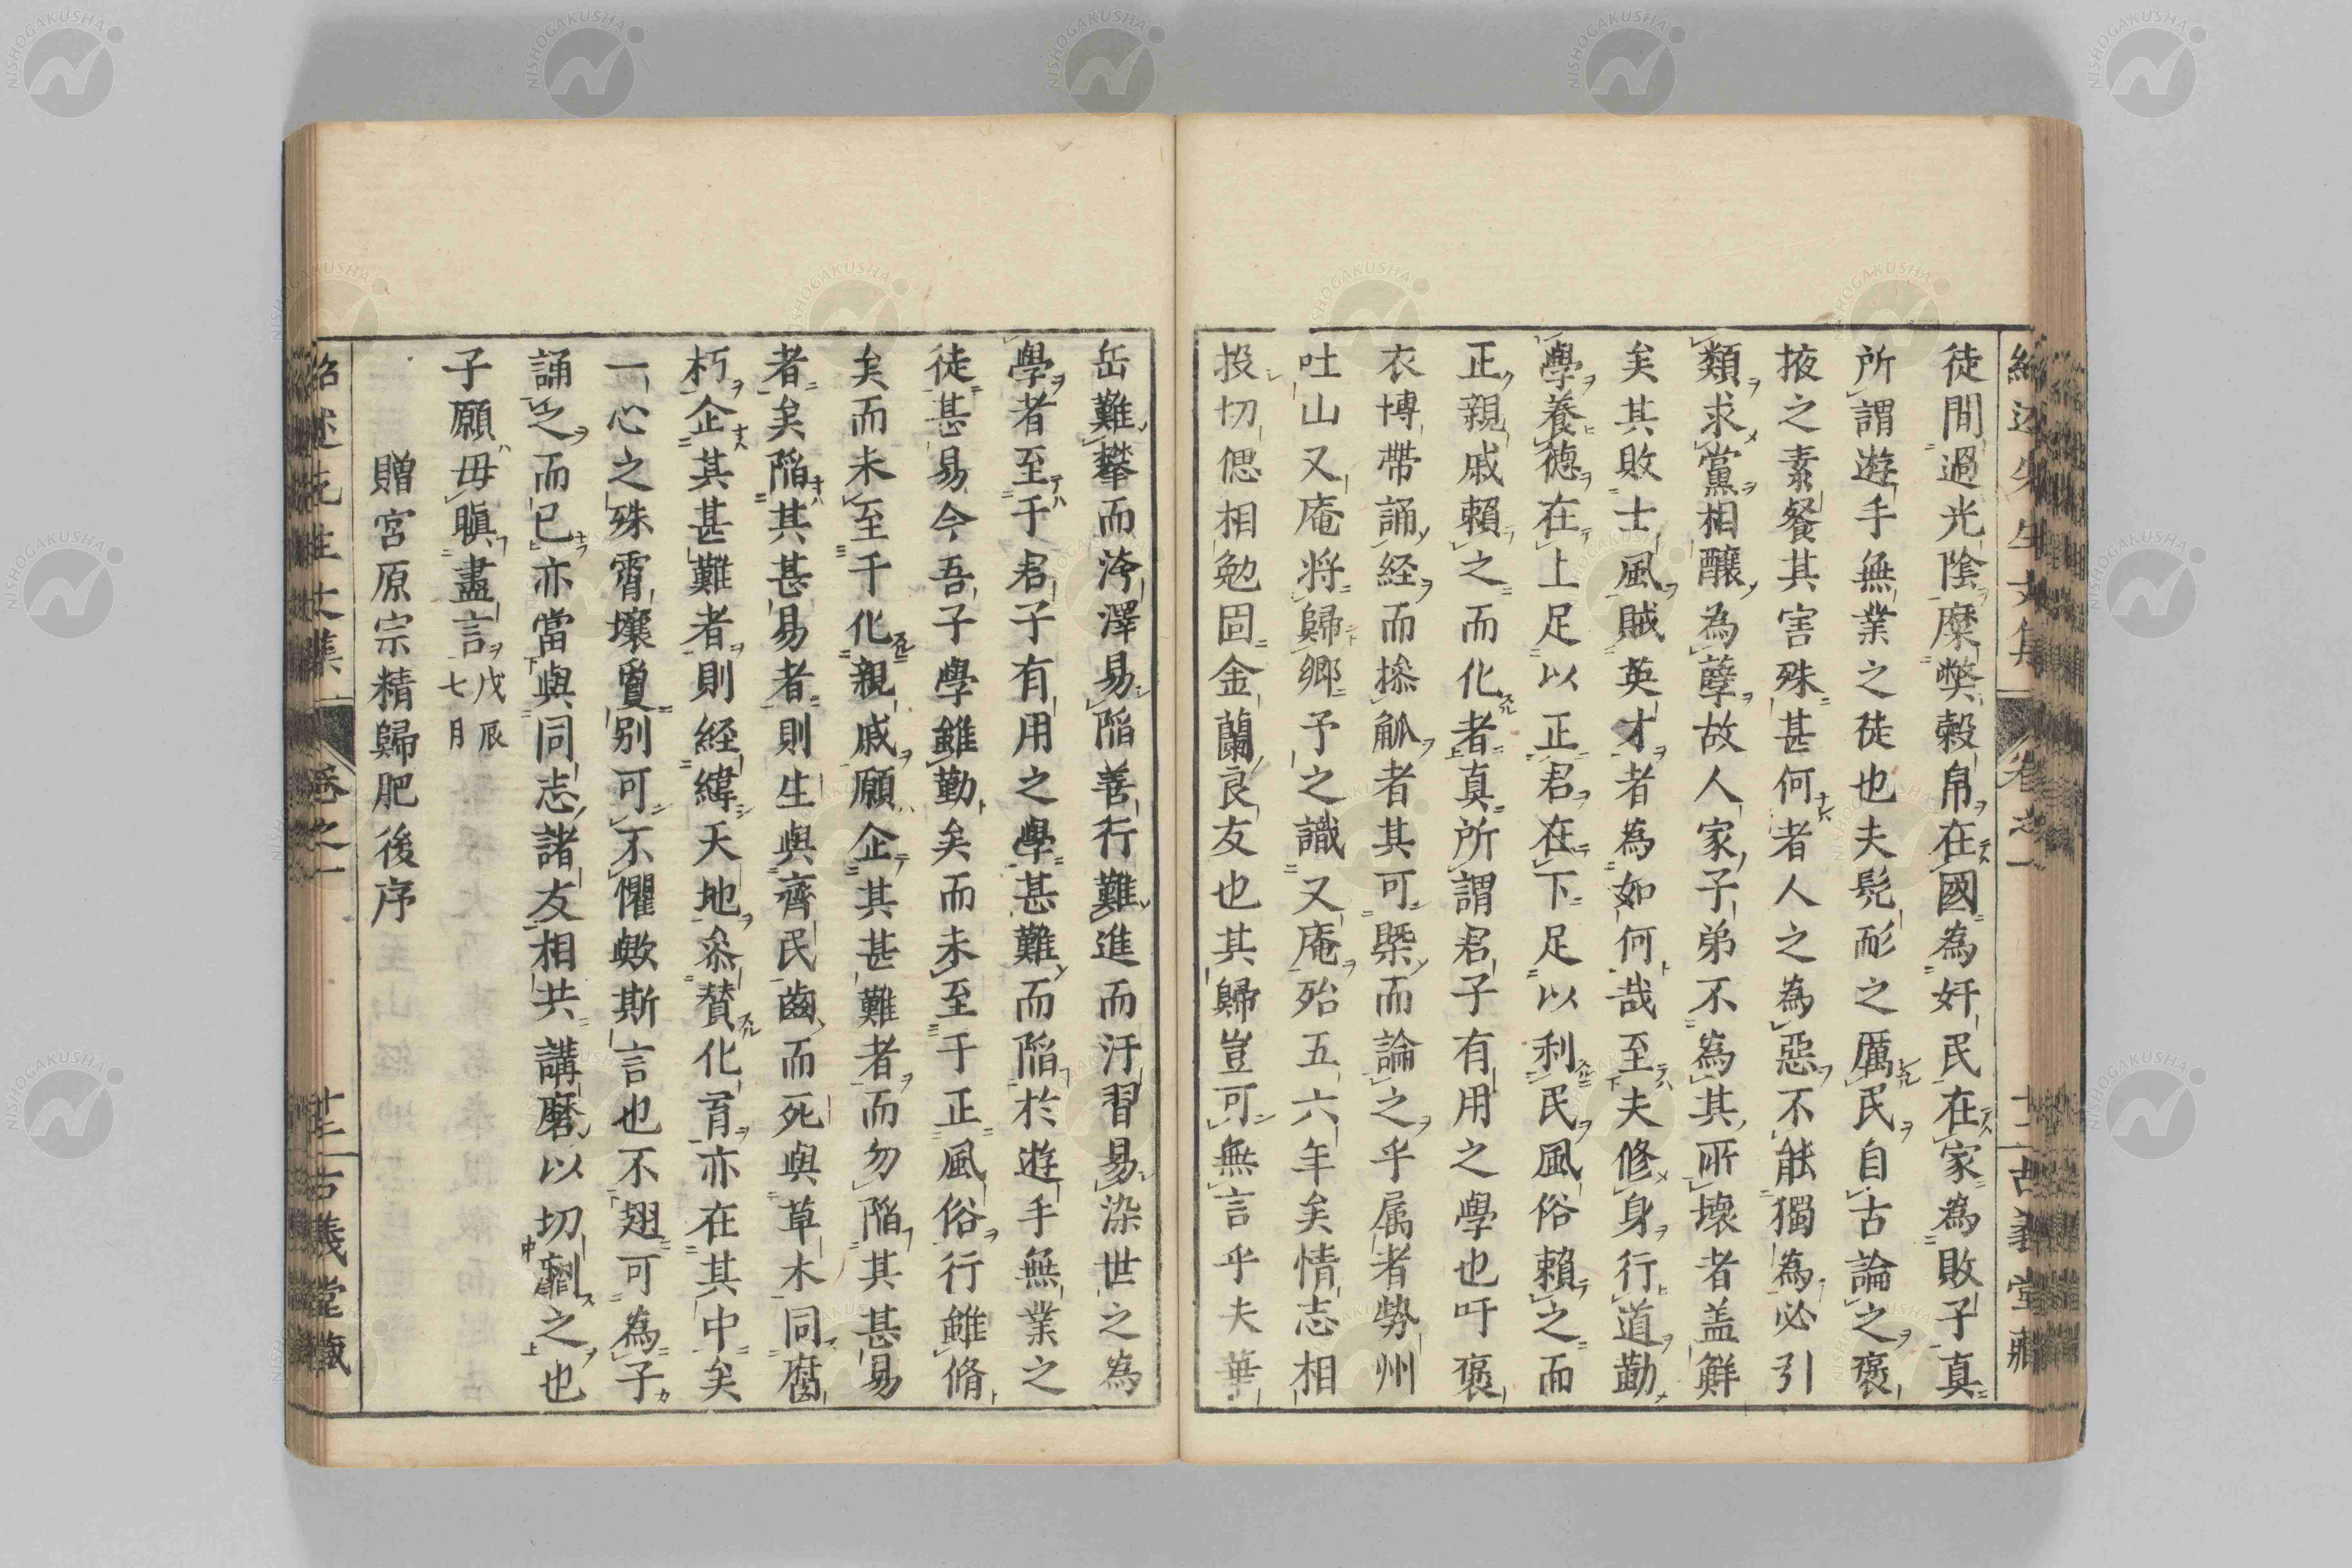 徒間過光陰糜弊穀帛在國為奸民在家為敗子真
所謂遊手無業之徒也夫髡形之厲民自古論之褒
掖之素餐其害殊甚何者人之為惡不能獨為必引
類求黨相釀為孽故人家子弟不為其所壞者盖鮮
矣其敗士風賊英才者為如何哉至夫修身行道勤
學養德在上足以正君在下足以利民風俗賴之而
正親戚賴之而化者真所謂君子有用之學也吁褒
衣博帶誦経而操觚者其可槩而論之乎属者勢州
吐山又庵将歸郷予之識又庵殆五六年矣情志相
投切偲相勉固金蘭良友也其歸豈可無言乎夫華
岳難攀而洿澤易陷善行難進而汙習易染世之為
學者至于君子有用之學甚難而陷於遊手無業之
徒甚易今吾子學雖勤矣而未至于正風俗行雖脩
矣而未至于化親戚願企其甚難者而勿陷其甚易
者矣陷其甚易者則生與齊民齒而死與草木同腐
朽企其甚難者則經緯天地叅賛化育亦在其中矣
一心之殊霄壤夐別可不懼歟斯言也不翅可為子
誦之而已亦當與同志諸友相共講磨以切劘之也
子願毋嗔盡言戊辰七月
贈宮原宗精歸肥後序
紹述先生文集 卷之一 十二 古義堂藏